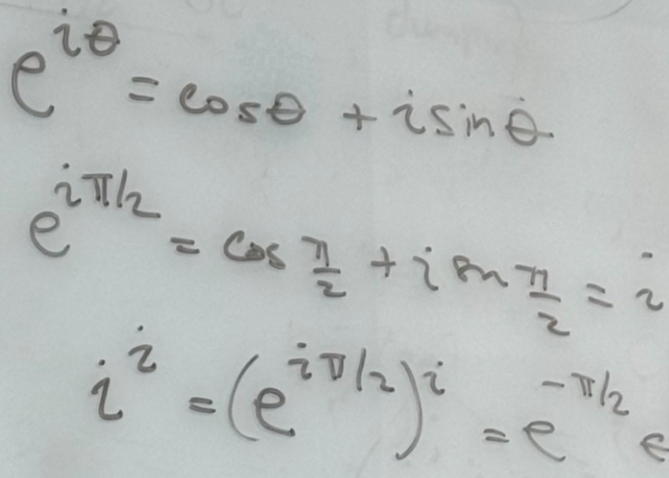 e^{iθ} = cosθ + i sinθ
e^{iπ/2} = cos π/2 + i sin π/2 = i
i^i = (e^{iπ/2})^i = e^{-π/2}